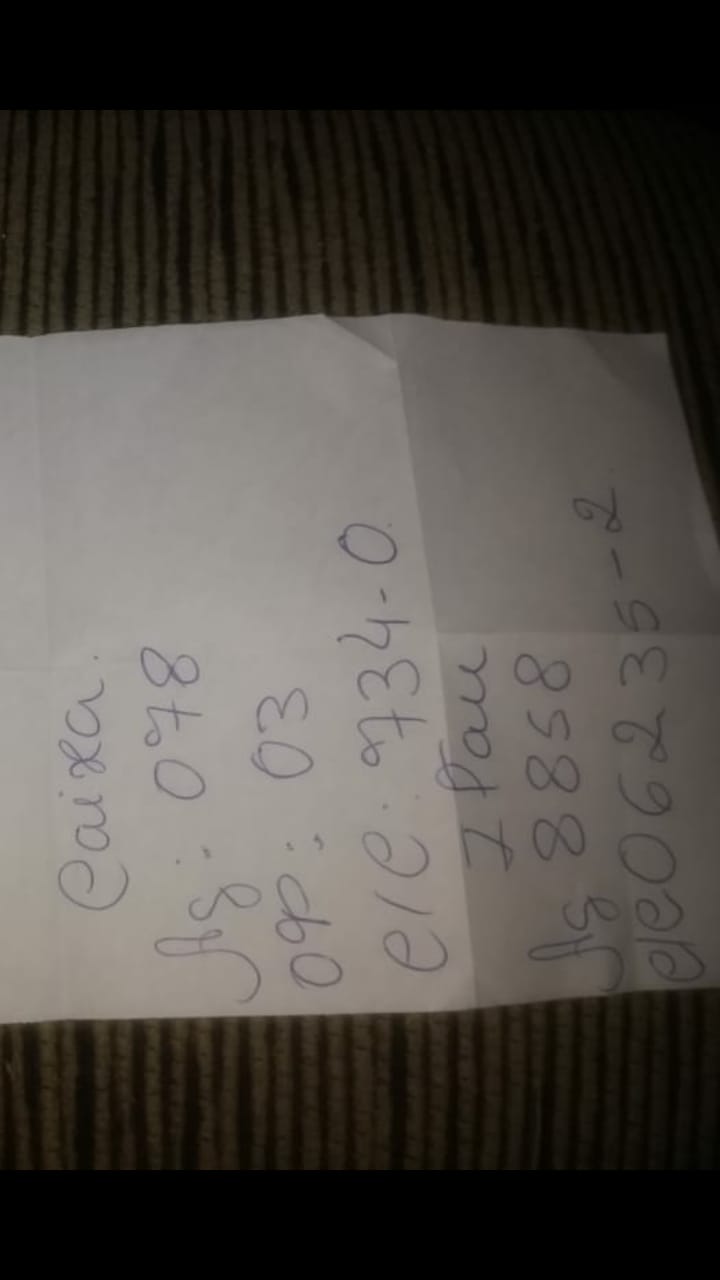 Caixa.
Ag: 078
OP: 03
C/C. 734-0.
Itau
Ag 8858
C/C 06235-2